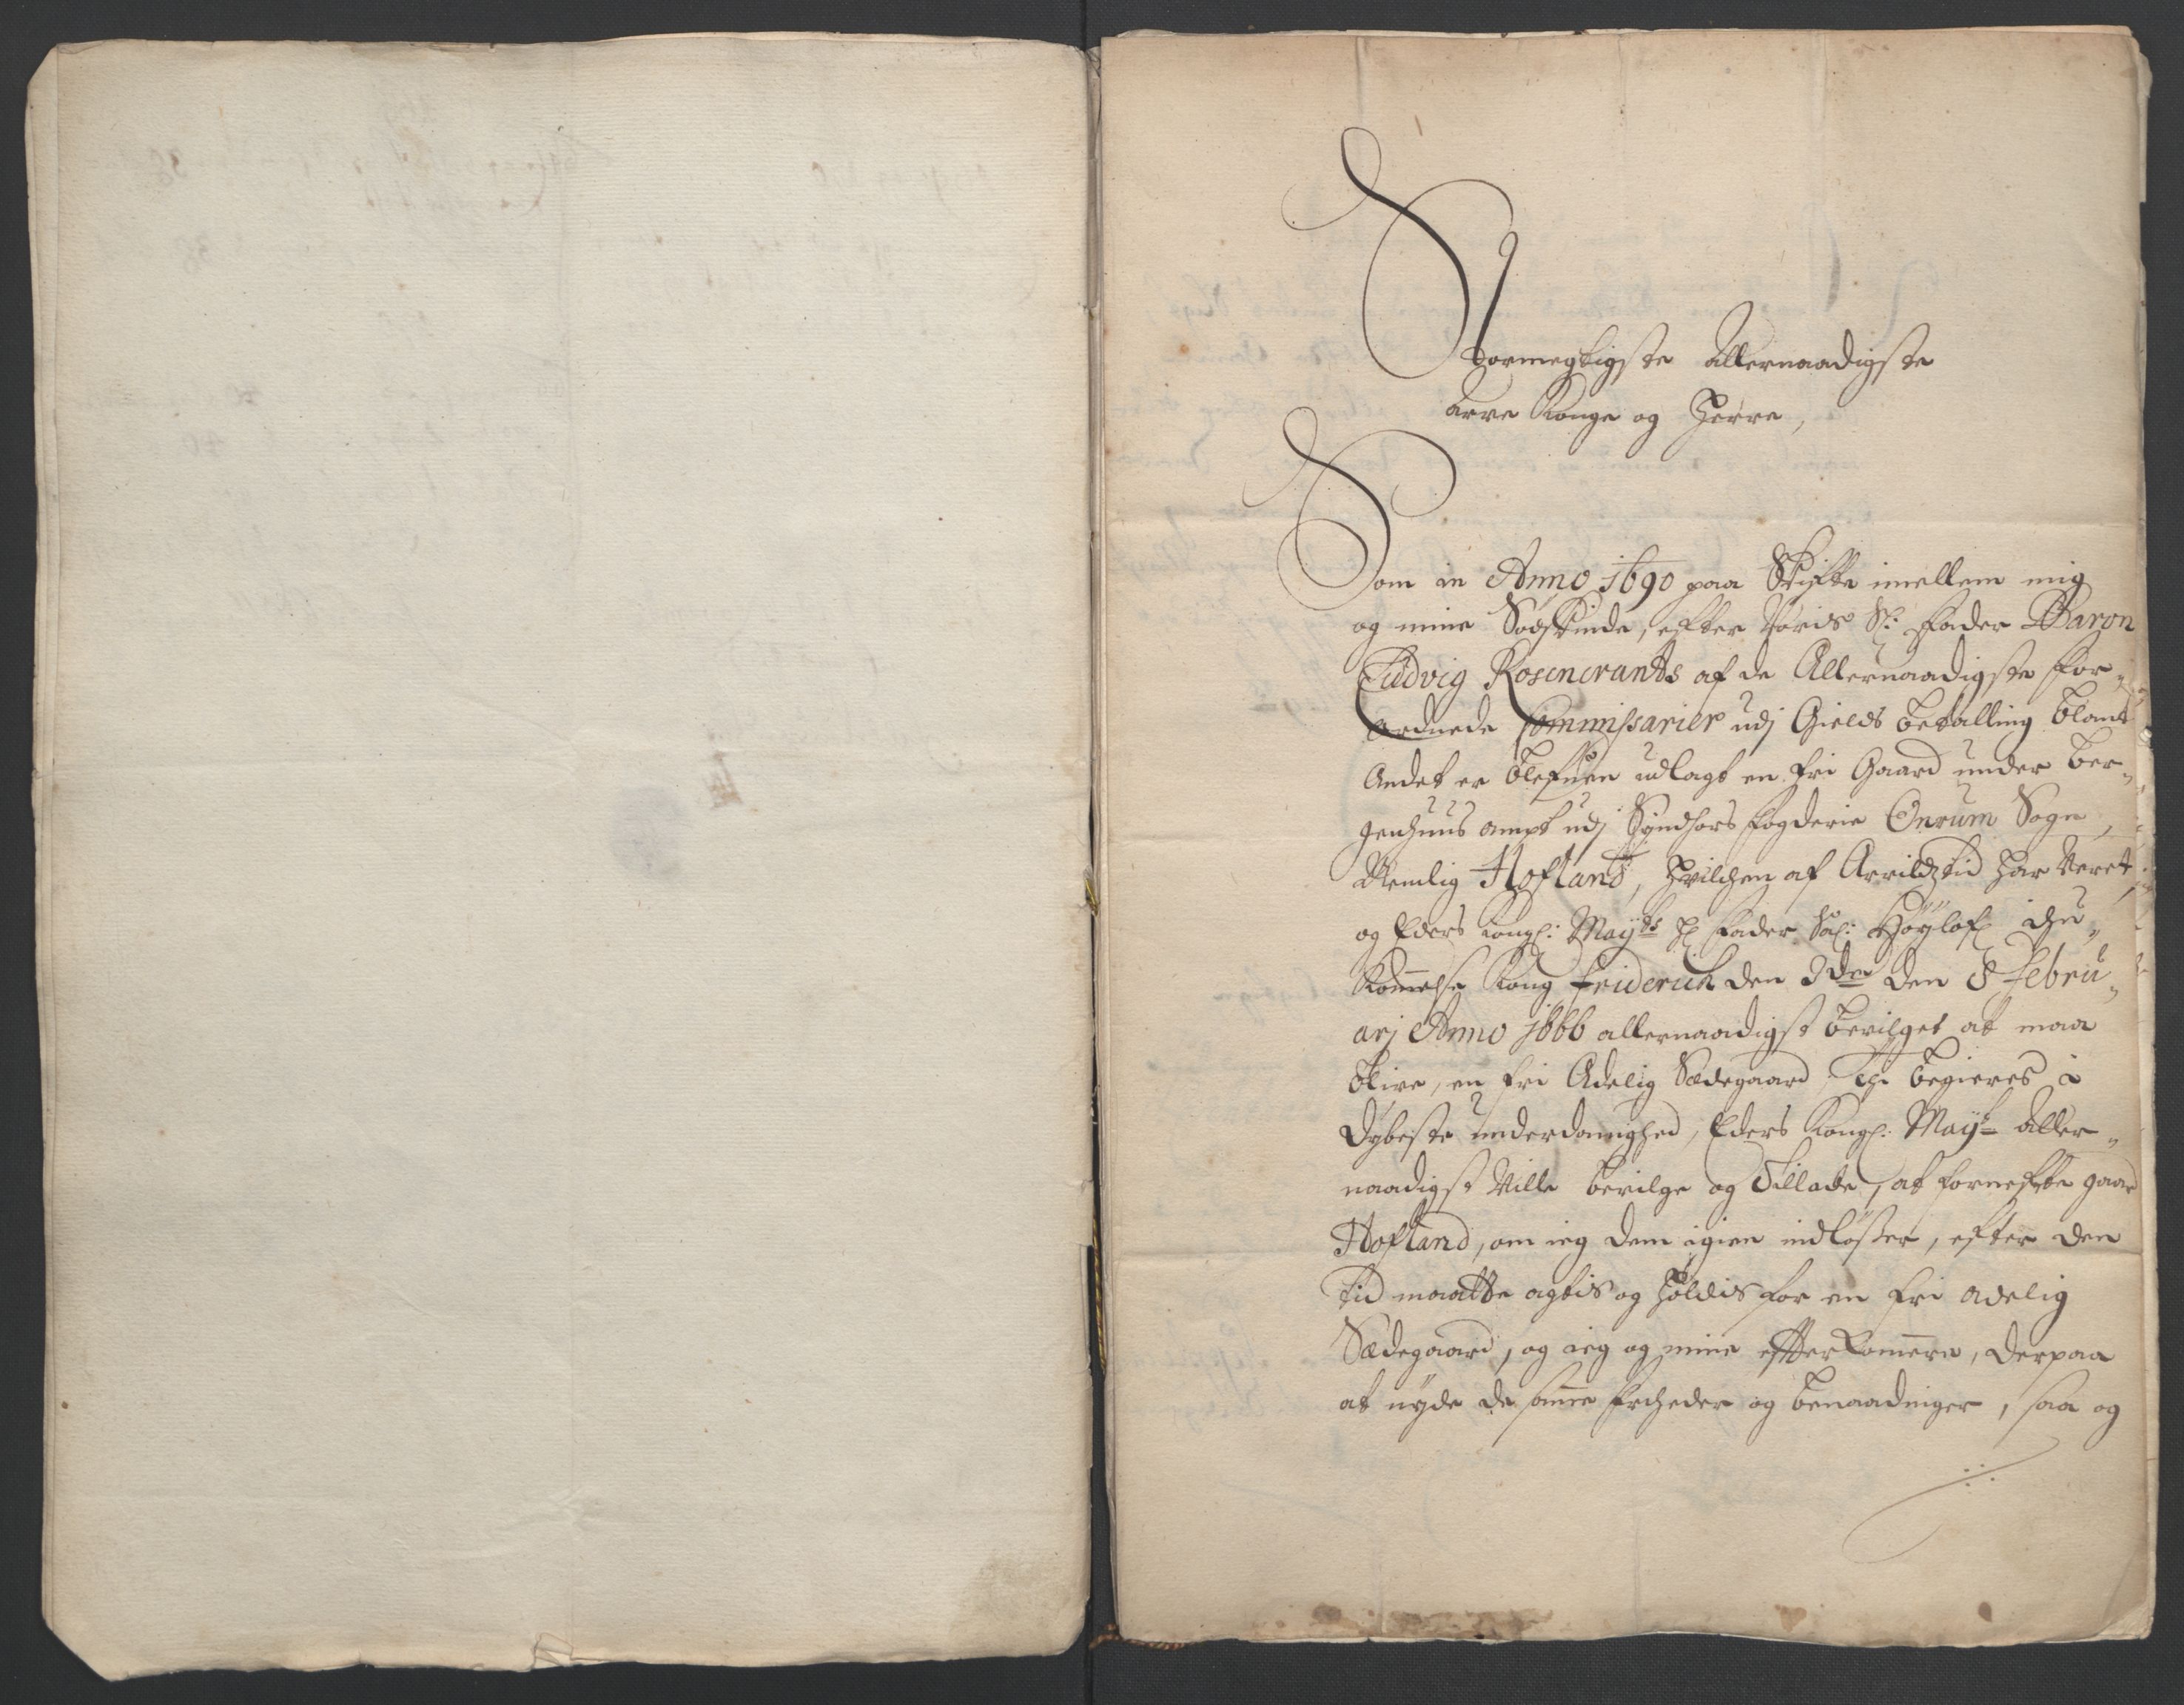 Stormegtigste Allernaadigste
Arve Konge og Herre,
Som in Anno 1690 paa Skifte imellem mig
og mine Södskinde, efter Voris Sl: Fader Baron
Ludvig Rosencrants af de Allernaadigste for„
ordnede Commissarier udj Gields betalling blant
Andet er blefuen udlagt en fri Gaard under Ber„
genhuus ampt udj Syndhors fogderie Onrum Sogn,
Nemlig Hofland, hvilchen af Arrildztid har veret,
og Eders Kongl: Mayts Hr Fader Sal: Höylofl ihu„
Kommelse Kong Friderich den 3de den 8 Febru„
arj Anno 1666 allernaadigst bevilget at maa
blive, en fri Adelig Sædegaard, begieres i
dybeste underdanighed, Eders Kongl: Mayt Aller„
naadigst Ville bevilge og Tillade, at fornefnte gaard
Hofland, om ieg dem igien indlösser, efter den
tid maatte agtis og holdis for en fri adelig
Sædegaard, og ieg og mine effterkommere, derpaa
at nyde de samme friheder og benaadninger, saa og